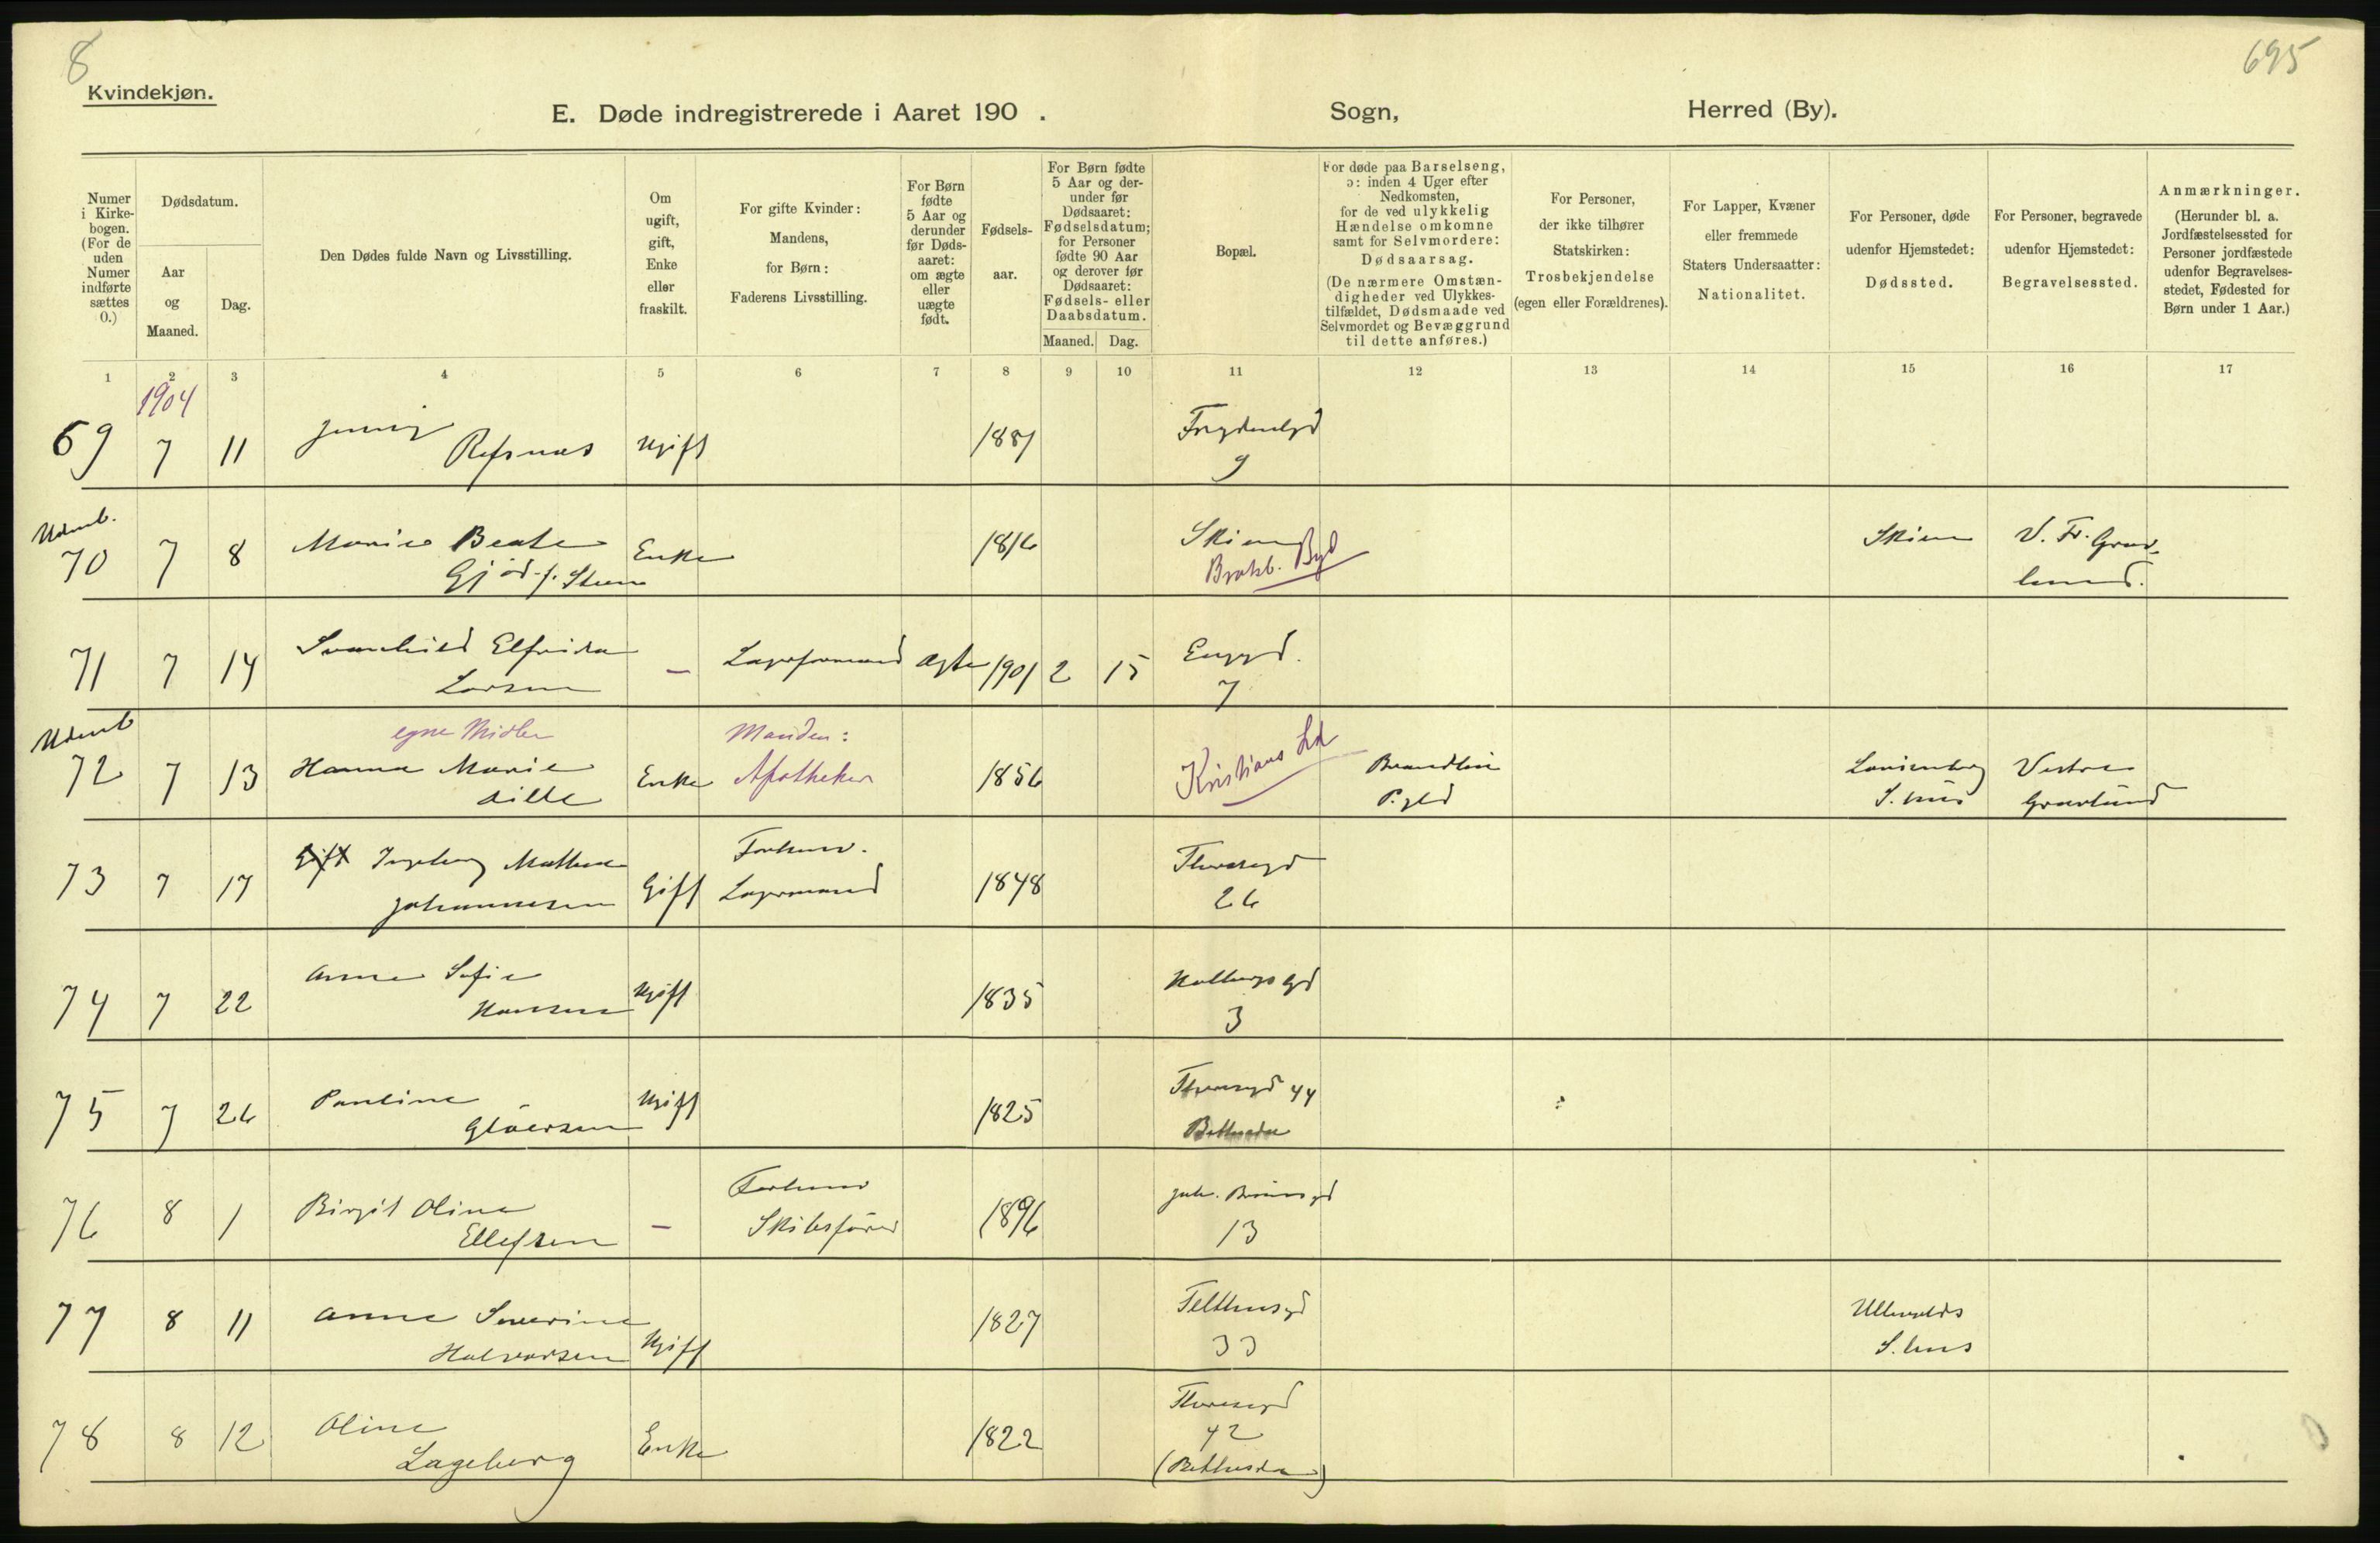 8
695
Kvindekjøn.
E. Døde indregistrerede i Aaret 190 . Sogn, Herred (By).
Numer i Kirke-bogen. (For de uden Numer indførte sættes 0.)
Dødsdatum.
Aar og Maaned.
Dag.
Den Dødes fulde Navn og Livsstilling.
Om ugift, gift, Enke eller fraskilt.
For gifte Kvinder: Mandens, for Børn: Faderens Livsstilling.
For Børn fødte 5 Aar og derunder før Døds-aaret: om ægte eller uægte født.
Fødsels-aar.
For Børn fødte 5 Aar og der-under før Dødsaaret: Fødselsdatum; for Personer fødte 90 Aar og derover før Dødsaaret: Fødsels- eller Daabsdatum.
Maaned. Dag.
Bopæl.
For døde paa Barselseng, ɔ: inden 4 Uger efter Nedkomsten, for de ved ulykkelig Hændelse omkomne samt for Selvmordere: Dødsaarsag. (De nærmere Omstæn-digheder ved Ulykkes-tilfældet, Dødsmaade ved Selvmordet og Bevæggrund til dette anføres.)
For Personer, der ikke tilhører Statskirken: Trosbekjendelse (egen eller Forældrenes).
For Lapper, Kvæner eller fremmede Staters Undersaatter: Nationalitet.
For Personer, døde udenfor Hjemstedet: Dødssted.
For Personer, begravede udenfor Hjemstedet: Begravelsessted.
Anmærkninger. (Herunder bl. a. Jordfæstelsessted for Personer jordfæstede udenfor Begravelses-stedet, Fødested for Børn under 1 Aar.)
1 2 3 4 5 6 7 8 9 10 11 12 13 14 15 16 17
1904
69 7 11 Jenny Refsnæs Ugift 1881 Frydenlgd 9
Udenb. 70 7 8 Marie Beate Gjöd f. Steen Enke 1816 Skien Bratsb. Byd Skien V. Fr. Grav-lund.
71 7 14 Svanhild Elfrida Larsen — Lagerformand Ægte 1901 2 15 Enggd. 7
Udenb 72 7 13 egne Midler Hanna Marie Lille Enke Manden: Apotheker 1856 Kristians Ld P.gld S.hus Vestre Gravlund
73 7 17 Gift Ingeborg Mathea Johannesen Gift Forhenv. Lagermand 1848 Theresesgd 26
74 7 22 Anne Sofie Hansen Ugift 1835 Holbergs gd 3
75 7 26 Pauline Glöersen Ugift 1825 Theresesgd 44 Bethesda
76 8 1 Birgit Oline Ellefsen — Forhenv Skibsfører 1896 Joh. Brunsgd 13
77 8 11 Anne Severine Halvorsen Ugift 1827 Telthusgd 33 Ullevolds S.hus
78 8 12 Oline Lageberg Enke 1822 Theresesgd 42 (Bethesda)